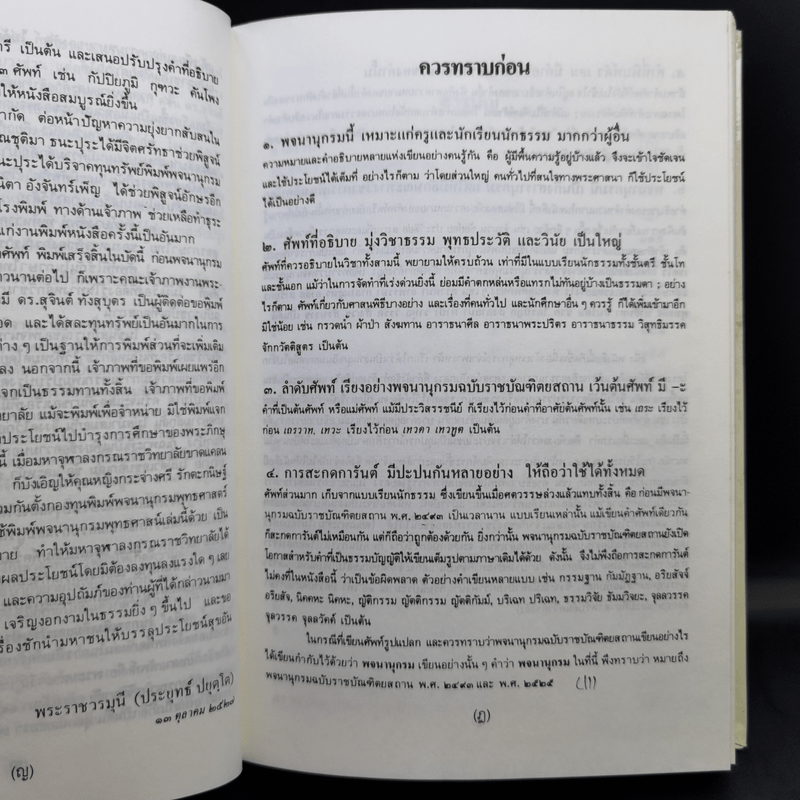 รี เป็นต้น และเสนอปรับปรุงคำที่อธิบาย
๓ ศัพท์ เช่น กัปปิยภูมิ กุฑวะ คันโพง
ให้หนังสือสมบูรณ์ยิ่งขึ้น
ากัด ต่อหน้าปัญหาความยุ่งยากสับสนใน
ณชุติมา ธนะปุระได้มีจิตศรัทธาช่วยพิสูจน์
นะปุระได้บริจาคทุนทรัพย์พิมพ์พจนานุกรม
นิตา อังจันทร์เพ็ญ ได้ช่วยพิสูจน์อักษรอีก
โรงพิมพ์ ทางด้านเจ้าภาพ ช่วยเหลือทำธุระ
แก่งานพิมพ์หนังสือครั้งนี้เป็นอันมาก
ศัพท์ พิมพ์เสร็จสิ้นในบัดนี้ ก่อนพจนานุกรม
าวนานต่อไป ก็เพราะคณะเจ้าภาพงานพระ-
มี ดร.สุจินต์ ทังสุบุตร เป็นผู้ติดต่อขอพิมพ์
อด และได้สละทุนทรัพย์เป็นอันมากในการ
ต่าง ๆ เป็นฐานให้การพิมพ์ส่วนที่จะเพิ่มเติม
ลง นอกจากนี้ เจ้าภาพที่ขอพิมพ์เผยแพร่อีก
จกเป็นธรรมทานทั้งสิ้น เจ้าภาพที่ขอพิมพ์
ทยาลัย แม้จะพิมพ์เพื่อจำหน่าย มิใช่พิมพ์แจก
าประโยชน์ไปบำรุงการศึกษาของพระภิกษุ
นี้ เมื่อมหาจุฬาลงกรณราชวิทยาลัยขาดแคลน
ก็บังเอิญให้คุณหญิงกระจ่างศรี รักตะกนิษฐ์
วมกันตั้งกองทุนพิมพ์พจนานุกรมพุทธศาสตร์
ช้พิมพ์พจนานุกรมพุทธศาสน์เล่มนี้ด้วย เป็น
าย ทำให้มหาจุฬาลงกรณราชวิทยาลัยได้
ผลประโยชน์โดยมิต้องลงทุนลงแรงใด ๆ เลย
และความอุปถัมภ์ของท่านผู้ที่ได้กล่าวนามมา
เจริญงอกงามในธรรมยิ่ง ๆ ขึ้นไป และขอ
รื่องชักนำมหาชนให้บรรลุประโยชน์สุขอัน
พระราชวรมุนี (ประยุทธ์ ปยุตฺโต)
๑๓ ตุลาคม ๒๕๒๗
(ญ)
ควรทราบก่อน
๑. พจนานุกรมนี้ เหมาะแก่ครูและนักเรียนนักธรรม มากกว่าผู้อื่น
ความหมายและคำอธิบายหลายแห่งเขียนอย่างคนรู้กัน คือ ผู้มีพื้นความรู้อยู่บ้างแล้ว จึงจะเข้าใจชัดเจน
และใช้ประโยชน์ได้เต็มที่ อย่างไรก็ตาม ว่าโดยส่วนใหญ่ คนทั่วไปที่สนใจทางพระศาสนา ก็ใช้ประโยชน์
ได้เป็นอย่างดี
๒. ศัพท์ที่อธิบาย มุ่งวิชาธรรม พุทธประวัติ และวินัย เป็นใหญ่
ศัพท์ที่ควรอธิบายในวิชาทั้งสามนี้ พยายามให้ครบถ้วน เท่าที่มีในแบบเรียนนักธรรมทั้งชั้นตรี ชั้นโท
และชั้นเอก แม้ว่าในการจัดทำที่เร่งด่วนยิ่งนี้ ย่อมมีคำตกหล่นหรือแทรกไม่ทันอยู่บ้างเป็นธรรมดา ; อย่าง
ไรก็ตาม ศัพท์เกี่ยวกับศาสนพิธีบางอย่าง และเรื่องที่คนทั่วไป และนักศึกษาอื่น ๆ ควรรู้ ก็ได้เพิ่มเข้ามาอีก
มิใช่น้อย เช่น กรวดน้ำ ผ้าป่า สังฆทาน อาราธนาศีล อาราธนาพระปริตร อาราธนาธรรม วิสุทธิมรรค
จักกวัตติสูตร เป็นต้น
๓. ลำดับศัพท์ เรียงอย่างพจนานุกรมฉบับราชบัณฑิตยสถาน เว้นต้นศัพท์ มี –ะ
คำที่เป็นต้นศัพท์ หรือแม่ศัพท์ แม้มีประวิสรรชนีย์ ก็เรียงไว้ก่อนคำที่อาศัยต้นศัพท์นั้น เช่น เถระ เรียงไว้
ก่อน เถรวาท, เทวะ เรียงไว้ก่อน เทวดา เทวทูต เป็นต้น
๔. การสะกดการันต์ มีปะปนกันหลายอย่าง ให้ถือว่าใช้ได้ทั้งหมด
ศัพท์ส่วนมาก เก็บจากแบบเรียนนักธรรม ซึ่งเขียนขึ้นเมื่อศตวรรษล่วงแล้วแทบทั้งสิ้น คือก่อนมีพจนา-
นุกรมฉบับราชบัณฑิตยสถาน พ.ศ. ๒๔๙๓ เป็นเวลานาน แบบเรียนเหล่านั้น แม้เขียนคำศัพท์เดียวกัน
ก็สะกดการันต์ไม่เหมือนกัน แต่ก็ถือว่าถูกต้องด้วยกัน ยิ่งกว่านั้น พจนานุกรมฉบับราชบัณฑิตยสถานยังเปิด
โอกาสสำหรับคำที่เป็นธรรมบัญญัติให้เขียนเต็มรูปตามภาษาเดิมได้ด้วย ดังนั้น จึงไม่พึงถือการสะกดการันต์
ไม่คงที่ในหนังสือนี้ ว่าเป็นข้อผิดพลาด ตัวอย่างคำเขียนหลายแบบ เช่น กรรมฐาน กัมมัฏฐาน, อริยสัจจ์
อริยสัจ, นิคคหะ นิคหะ, ญัติกรรม ญัตติกรรม ญัตติกัมม์, บริเฉท ปริเฉท, ธรรมวิจัย ธัมมวิจยะ, จุลลวรรค
จุลวรรค จุลลวัคค์ เป็นต้น
ในกรณีที่เขียนศัพท์รูปแปลก และควรทราบว่าพจนานุกรมฉบับราชบัณฑิตยสถานเขียนอย่างไร
ได้เขียนกำกับไว้ด้วยว่า พจนานุกรม เขียนอย่างนั้น ๆ คำว่า พจนานุกรม ในที่นี้ พึงทราบว่า หมายถึง
พจนานุกรมฉบับราชบัณฑิตยสถาน พ.ศ. ๒๔๙๓ และ พ.ศ. ๒๕๒๕
(ฎ)